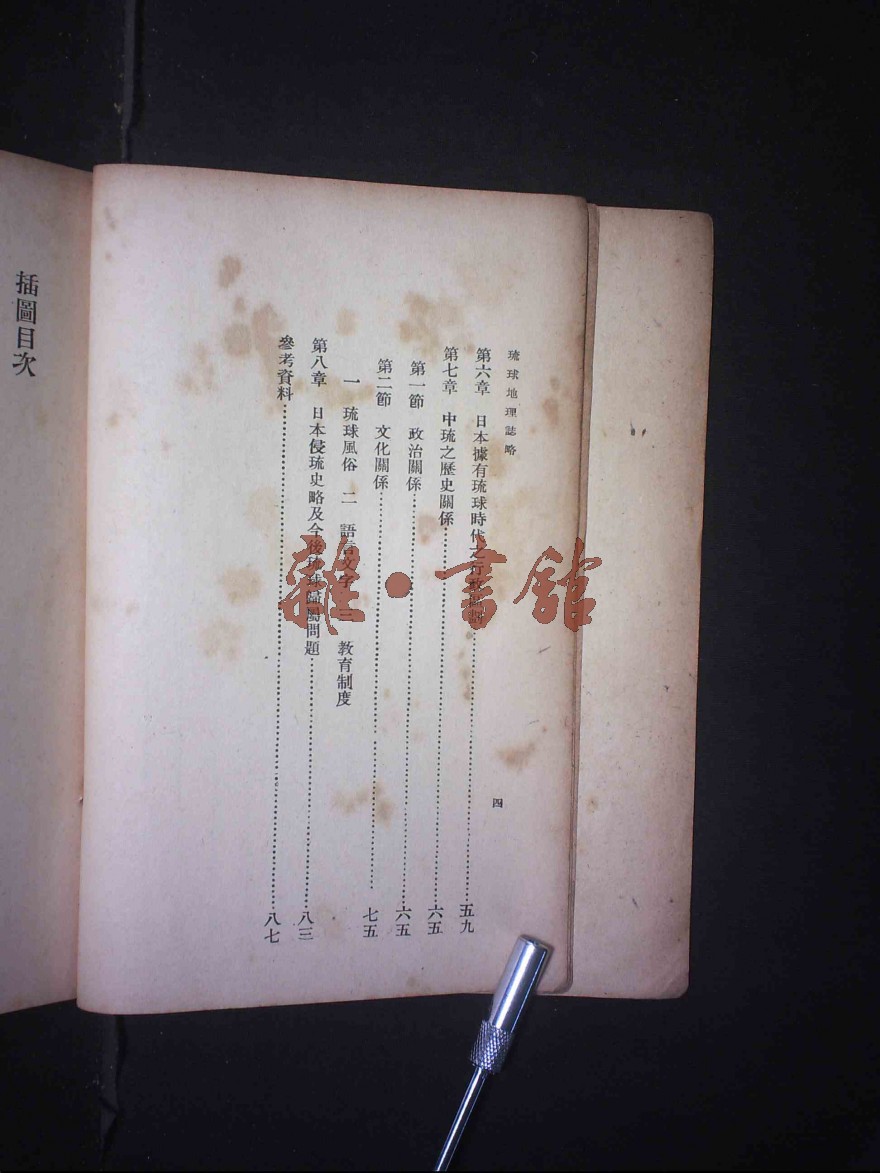 琉球地理誌略
四
第六章 日本據有琉球時代之行政區劃……五九
第七章 中琉之歷史關係……六五
第一節 政治關係……六五
第二節 文化關係……七五
一 琉球風俗 二 語言文字 三 教育制度
第八章 日本侵琉史略及今後琉球歸屬問題……八三
參考資料……八七
插圖目次
雜·書館